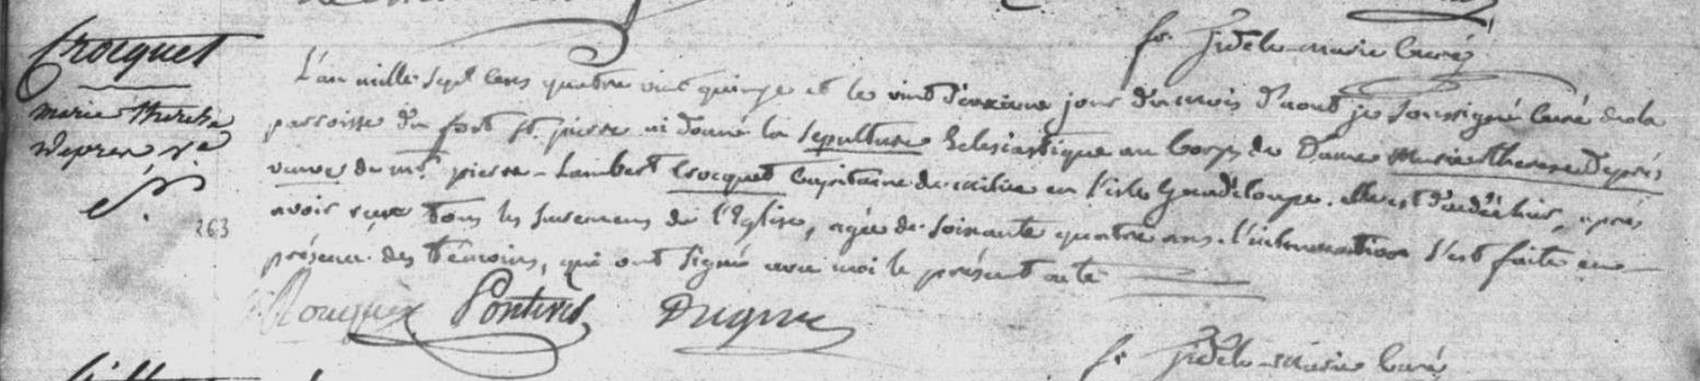 fr. fidele-marie Curé
Crocquet
marie therese
Deprez ve
263
L'an mille sept cens quatre vint quinze et le vint deuxieme jour du mois d'aout je soussigné Curé de la
parroisse du fort st. pierre ai donné la sepulture Eclesiastique au Corps de Dame Marie therese Deprés
veuve de mr. pierre-Lambert Crocquet Capitaine de milice en l'isle Guadeloupe. elle est décédée hier, aprés
avoir reçue tous les sacremens de l'Eglise, agée de soixante quatre ans. l'inhumation s'est faite en
présence des témoins, qui ont signé avec moi le présent acte
fr. fidele-marie Curé